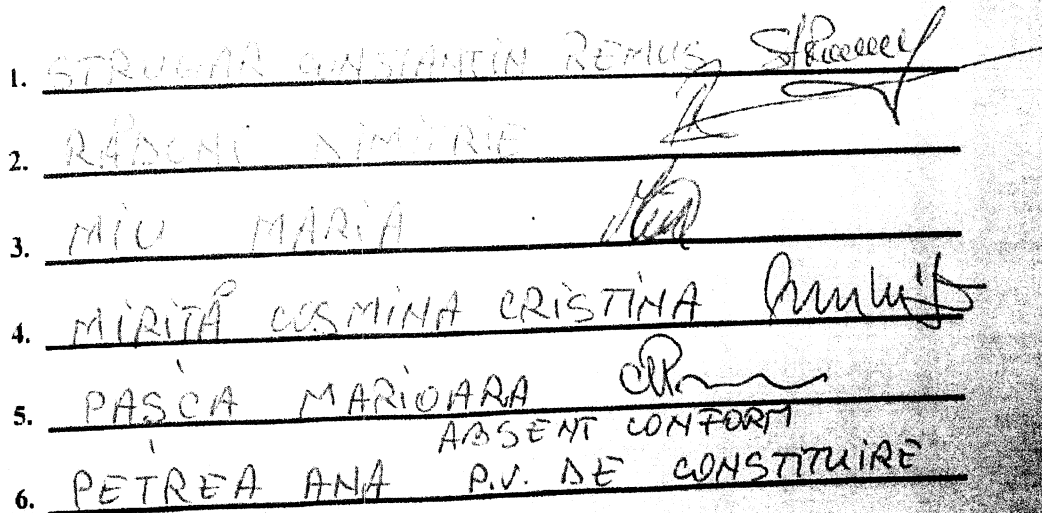 1. STRUGAR CONSTANTIN REMUS
2. RĂDONI DIMITRIE
3. MIU MARIA
4. MIRIȚĂ COSMINA CRISTINA
5. PAȘCA MARIOARA
ABSENT CONFORM
6. PETREA ANA P.V. DE CONSTITUIRE